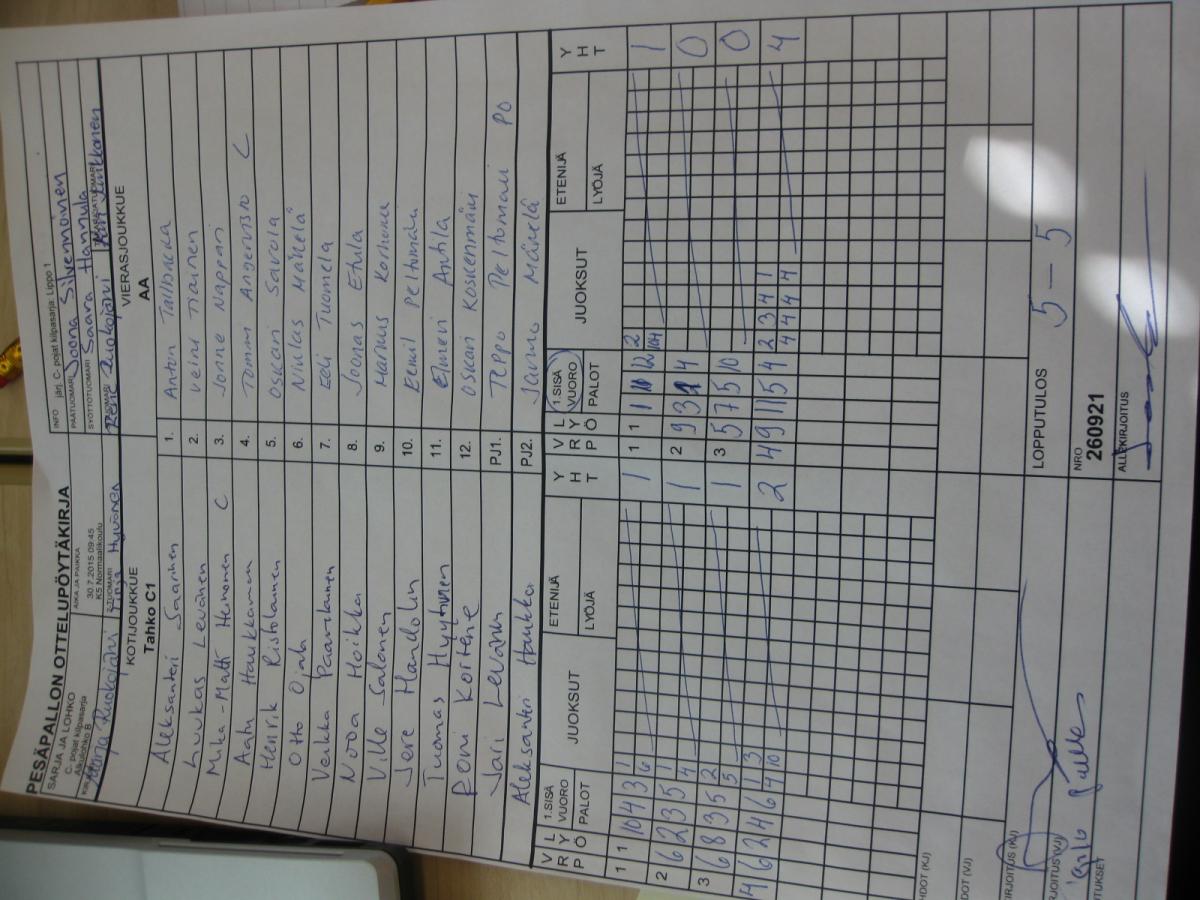 PESÄPALLON OTTELUPÖYTÄKIRJA
SARJA JA LOHKO
C- pojat kilpasarja
Alkulohko B
AIKA JA PAIKKA
30.7.2015 09:45
KS Normaalikoulu
INFO järj. C-pojat kilpasarja: Lippo 1
PÄÄTUOMARI Joona Silvennoinen
SYÖTTÖTUOMARI Saara Hannula
Ruokojärvi
KOTIJOUKKUE
Tahko C1
VIERASJOUKKUE
AA
Aleksanteri Saarinen 1. Anton Tallbacka
Luukas Levänen 2. Veini Tiainen
Mika-Matti Heinonen C 3. Jonne Nappari
Aatu Haukkamaa 4. Tommi Angervisto C
Henrik Ristolainen 5. Oskari Savola
Otto Ojala 6. Niklas Mäkelä
Veikka Paavilainen 7. Eeli Tuomela
Nooa Hoikka 8. Joonas Etula
Ville Salonen 9. Markus Korhonen
Jere Handolin 10. Eemil Peltomäki
Tuomas Hyytinen 11. Elmeri Anttila
Roni Kortene 12. Oskari Koskenmäki
Jari Levänen PJ1. Teppo Peltomäki PO
Aleksanteri Haukka PJ2. Jarmo Mäkelä
V R P L Y Ö 1.SISÄ VUORO PALOT JUOKSUT ETENIJÄ LYÖJÄ Y H T
V R P L Y Ö 1.SISÄ VUORO PALOT JUOKSUT ETENIJÄ LYÖJÄ Y H T
1 1 10 4 3 1 6 1
2 6 2 3 5 1 4 1
3 6 8 3 5 2 5 1
4 6 2 4 6 4 3 10 2
1 1 1 12 2 1
2 9 3 4 0
3 5 7 5 10 0
4 9 11 5 4 2 3 4 1 4 4 4 4 4
LOPPUTULOS
5 - 5
NRO
260921
ALLEKIRJOITUS
HDOT (KJ)
DOT (VJ)
IRJOITUS (KJ)
RJOITUS (VJ)
TUKSET